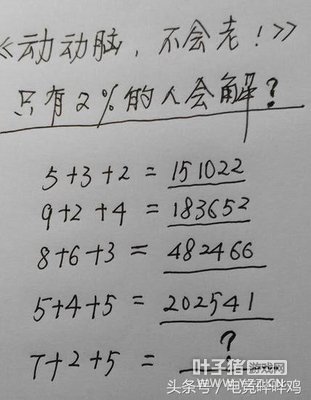 《动动脑，不会老！》
只有2%的人会解？
5+3+2=151022
9+2+4=183652
8+6+3=482466
5+4+5=202541
7+2+5=?
叶子猪游戏网
WWW.YZZ.CN
头条号/电竞砰砰鸡